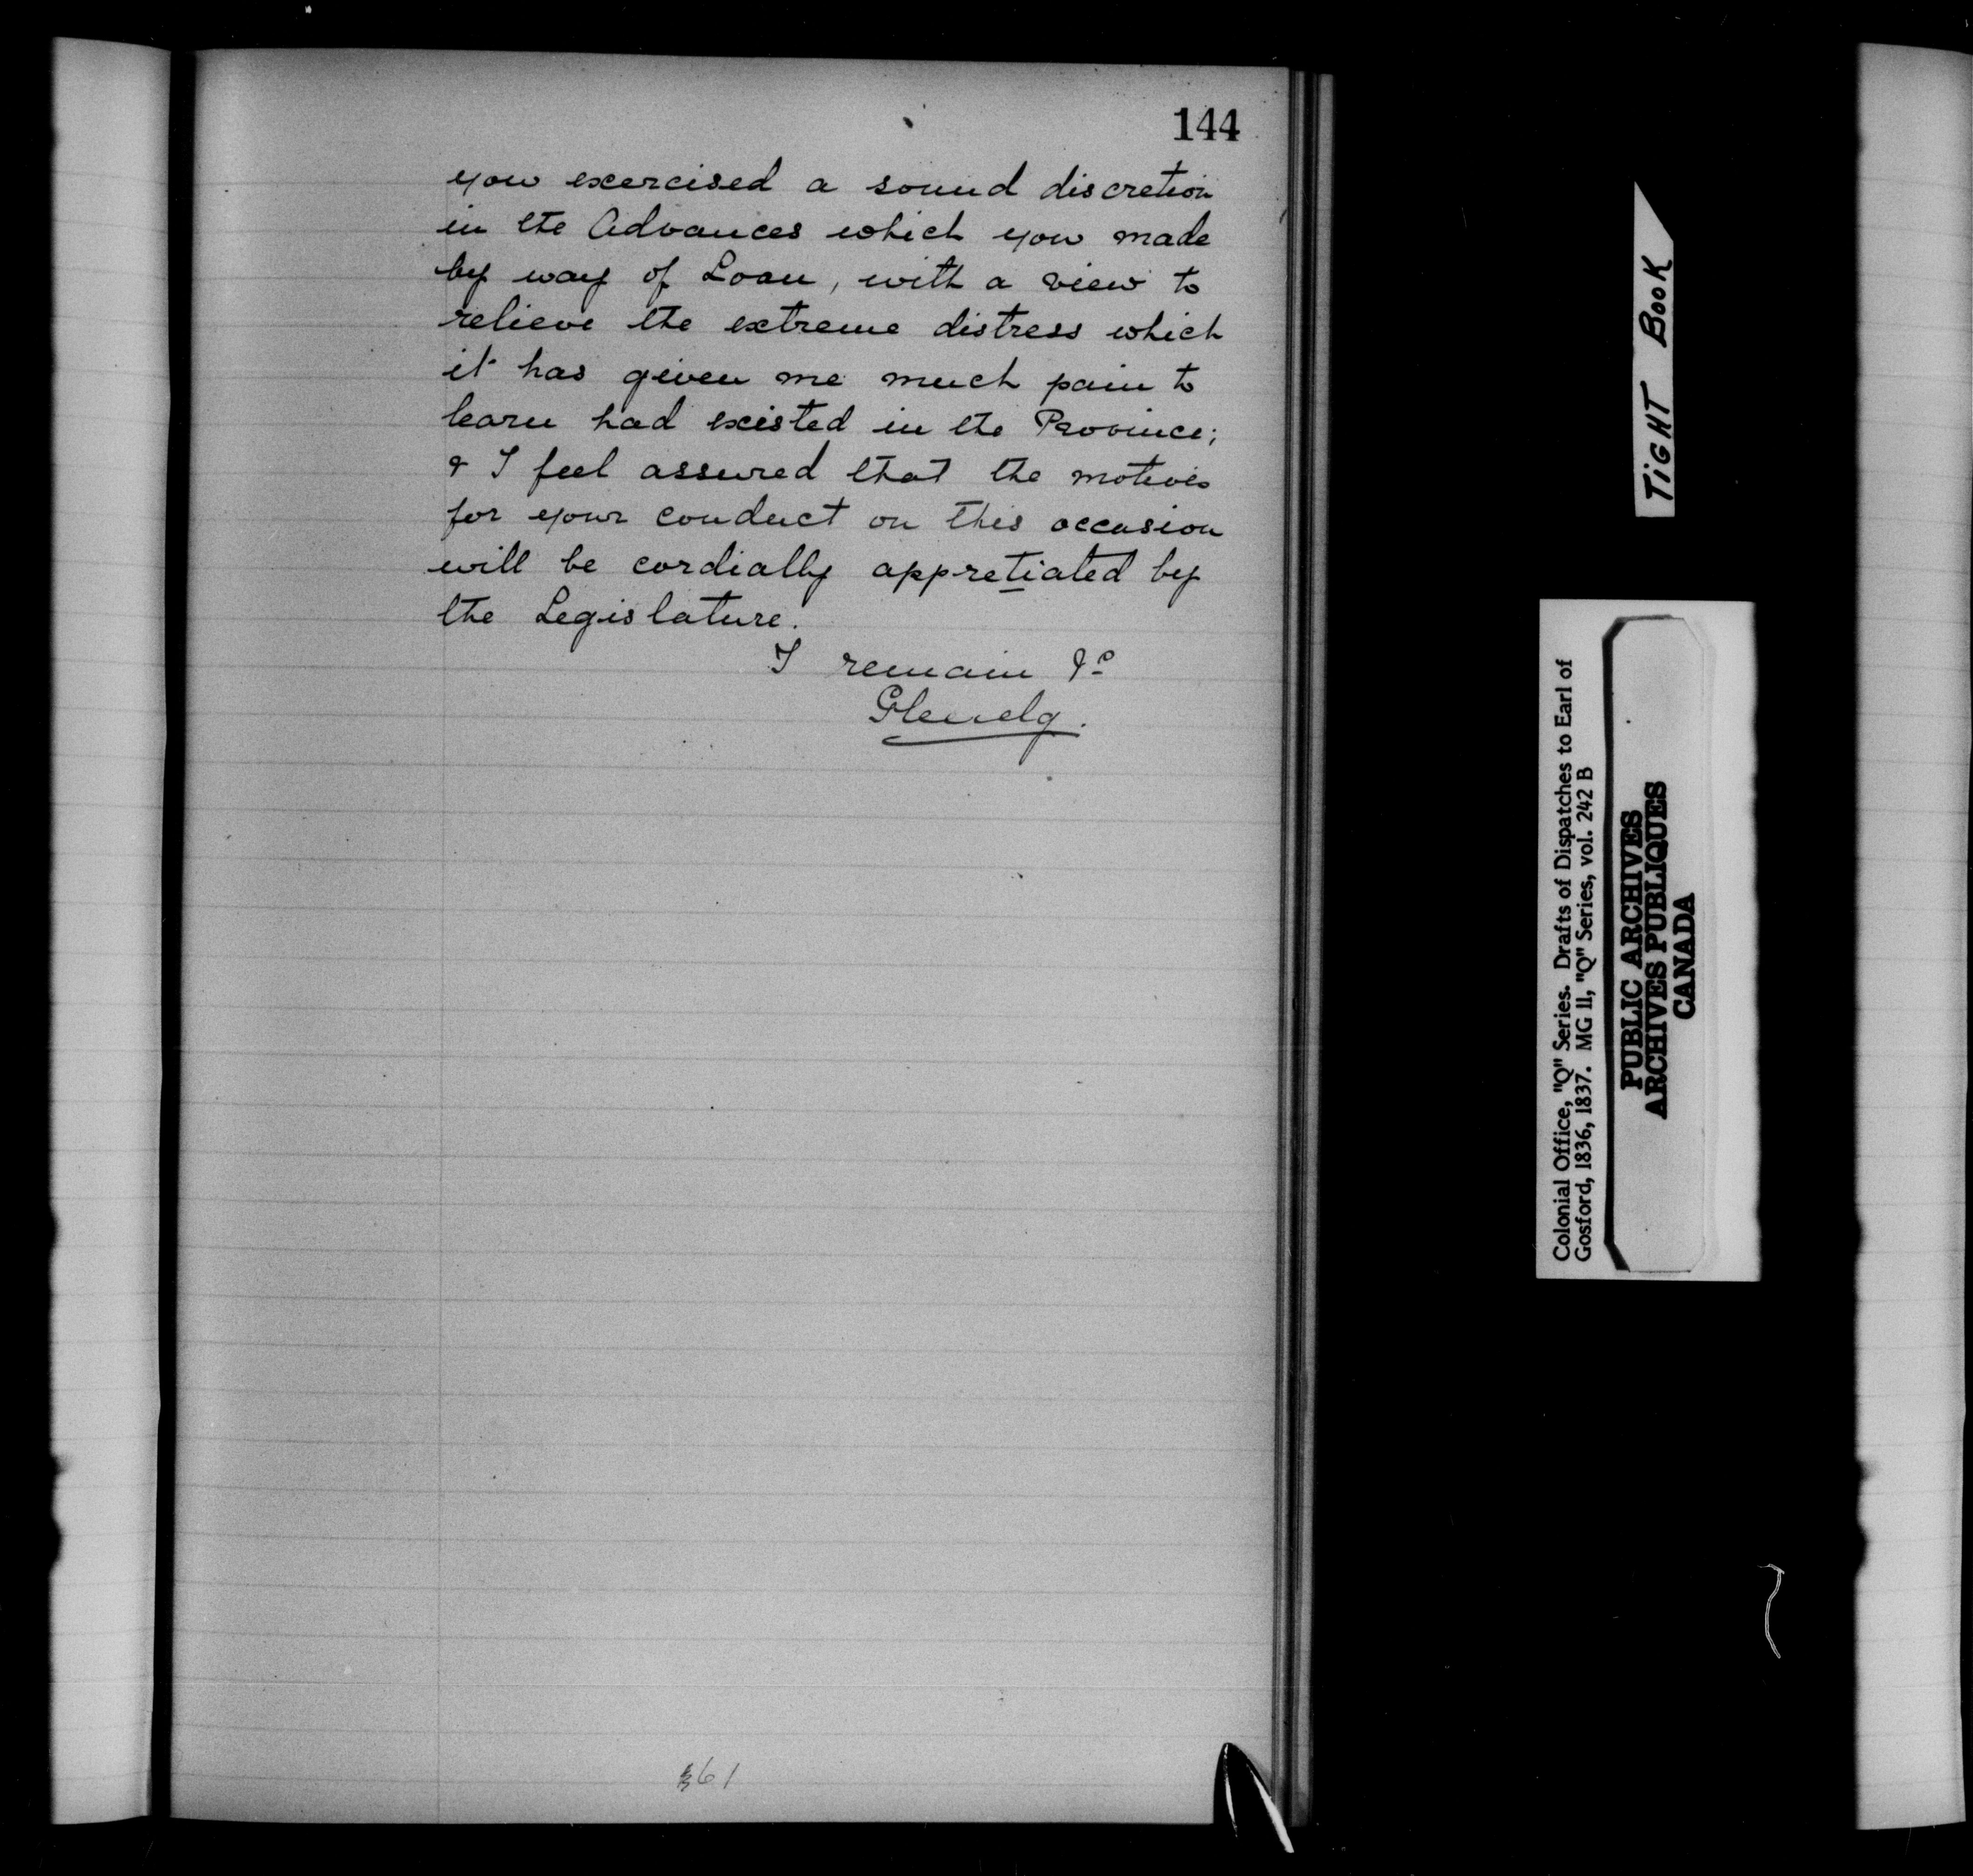 144
you exercised a sound discretion
in the Advances which you made
by way of Loan, with a view to
relieve the extreme distress which
it has given me much pain to
learn had existed in the Province;
& I feel assured that the motives
for your conduct on this occasion
will be cordially appretiated by
the Legislature.
I remain &c
Glenelg.
361
TIGHT BOOK
Colonial Office, "Q" Series. Drafts of Dispatches to Earl of
Gosford, 1836, 1837. MG 11, "Q" Series, vol. 242 B
PUBLIC ARCHIVES
ARCHIVES PUBLIQUES
CANADA